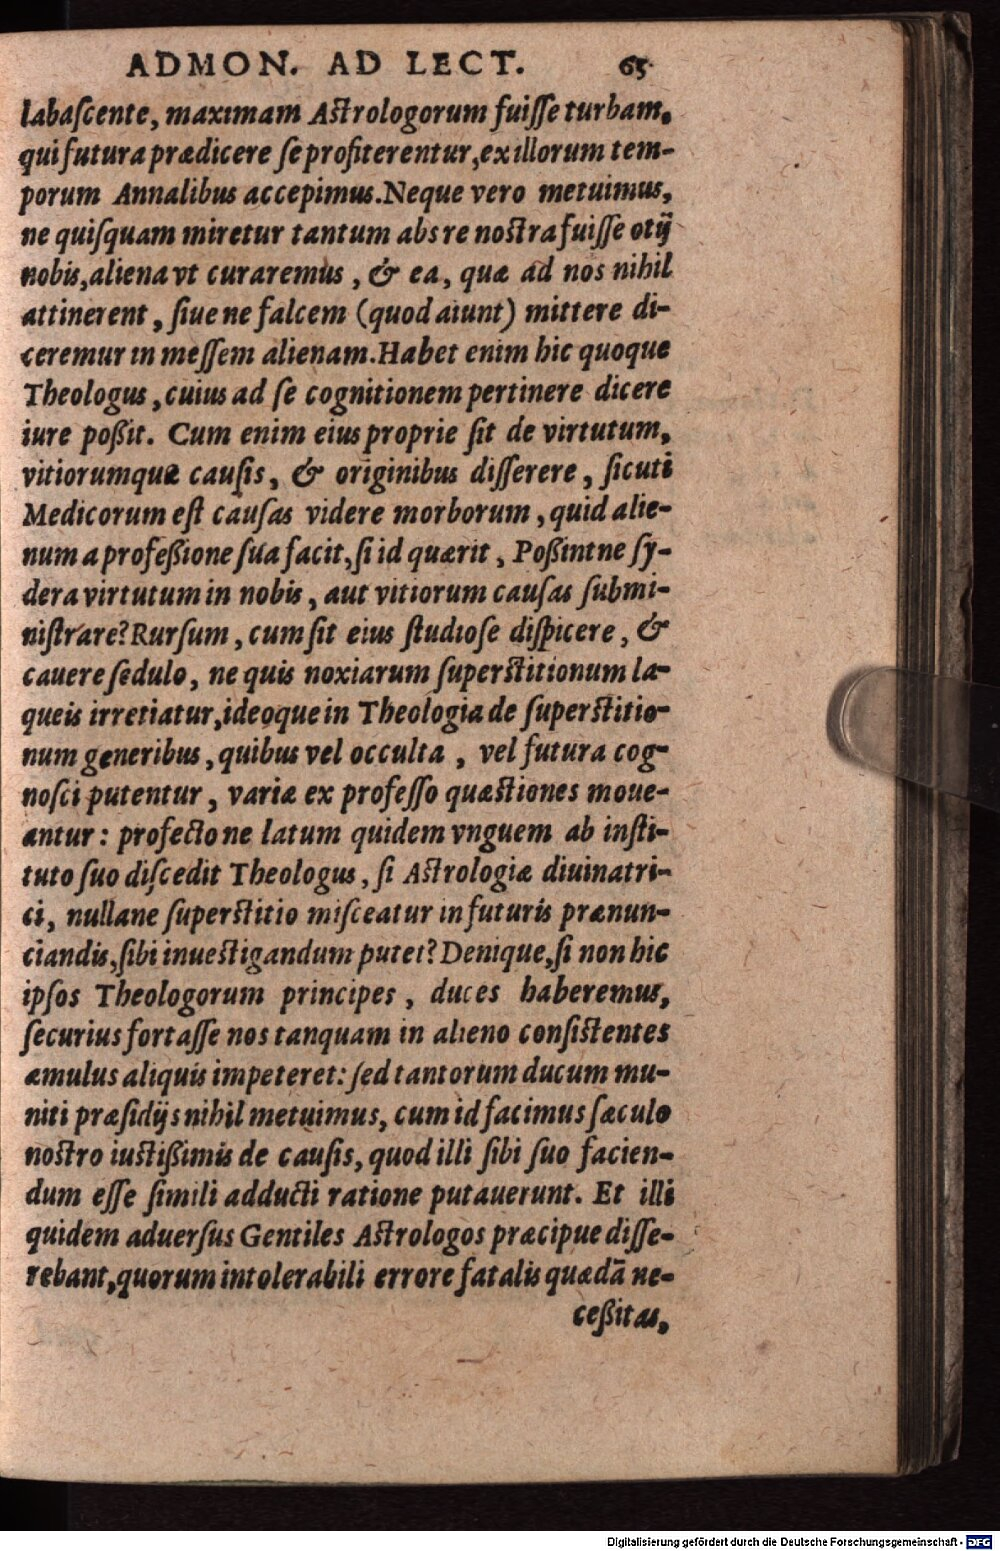 ADMON. AD LECT. 65
labaſcente, maximam Aſtrologorum fuiſſe turbam,
qui futura prædicere ſe profiterentur, ex illorum tem-
porum Annalibus accepimus. Neque vero metuimus,
ne quiſquam miretur tantum abs re noſtra fuiſſe otij
nobis, aliena vt curaremus, & ea, quæ ad nos nihil
attinerent, ſiue ne falcem (quod aiunt) mittere di-
ceremur in meſſem alienam. Habet enim hic quoque
Theologus, cuius ad ſe cognitionem pertinere dicere
iure poßit. Cum enim eius proprie ſit de virtutum,
vitiorumquæ cauſis, & originibus diſſerere, ſicuti
Medicorum eſt cauſas videre morborum, quid alie-
num a profeßione ſua facit, ſi id quærit, Poßintne ſy-
dera virtutum in nobis, aut vitiorum cauſas ſubmi-
niſtrare? Rurſum, cum ſit eius ſtudioſe diſpicere, &
cauere ſedulo, ne quis noxiarum ſuperſtitionum la-
queis irretiatur, ideoque in Theologia de ſuperſtitio-
num generibus, quibus vel occulta, vel futura cog-
noſci putentur, variæ ex profeſſo quæſtiones moue-
antur: profecto ne latum quidem vnguem ab inſti-
tuto ſuo diſcedit Theologus, ſi Aſtrologiæ diuinatri-
ci, nullane ſuperſtitio miſceatur in futuris prænun-
ciandis, ſibi inueſtigandum putet? Denique, ſi non hic
ipſos Theologorum principes, duces haberemus,
ſecurius fortaſſe nos tanquam in alieno conſiſtentes
æmulus aliquis impeteret: ſed tantorum ducum mu-
niti præſidijs nihil metuimus, cum id facimus ſæculo
noſtro iuſtißimis de cauſis, quod illi ſibi ſuo facien-
dum eſſe ſimili adducti ratione putauerunt. Et illi
quidem aduerſus Gentiles Aſtrologos præcipue diſſe-
rebant, quorum intolerabili errore fatalis quædā ne-
ceßitas,
Digitalisierung gefördert durch die Deutsche Forschungsgemeinschaft - DFG